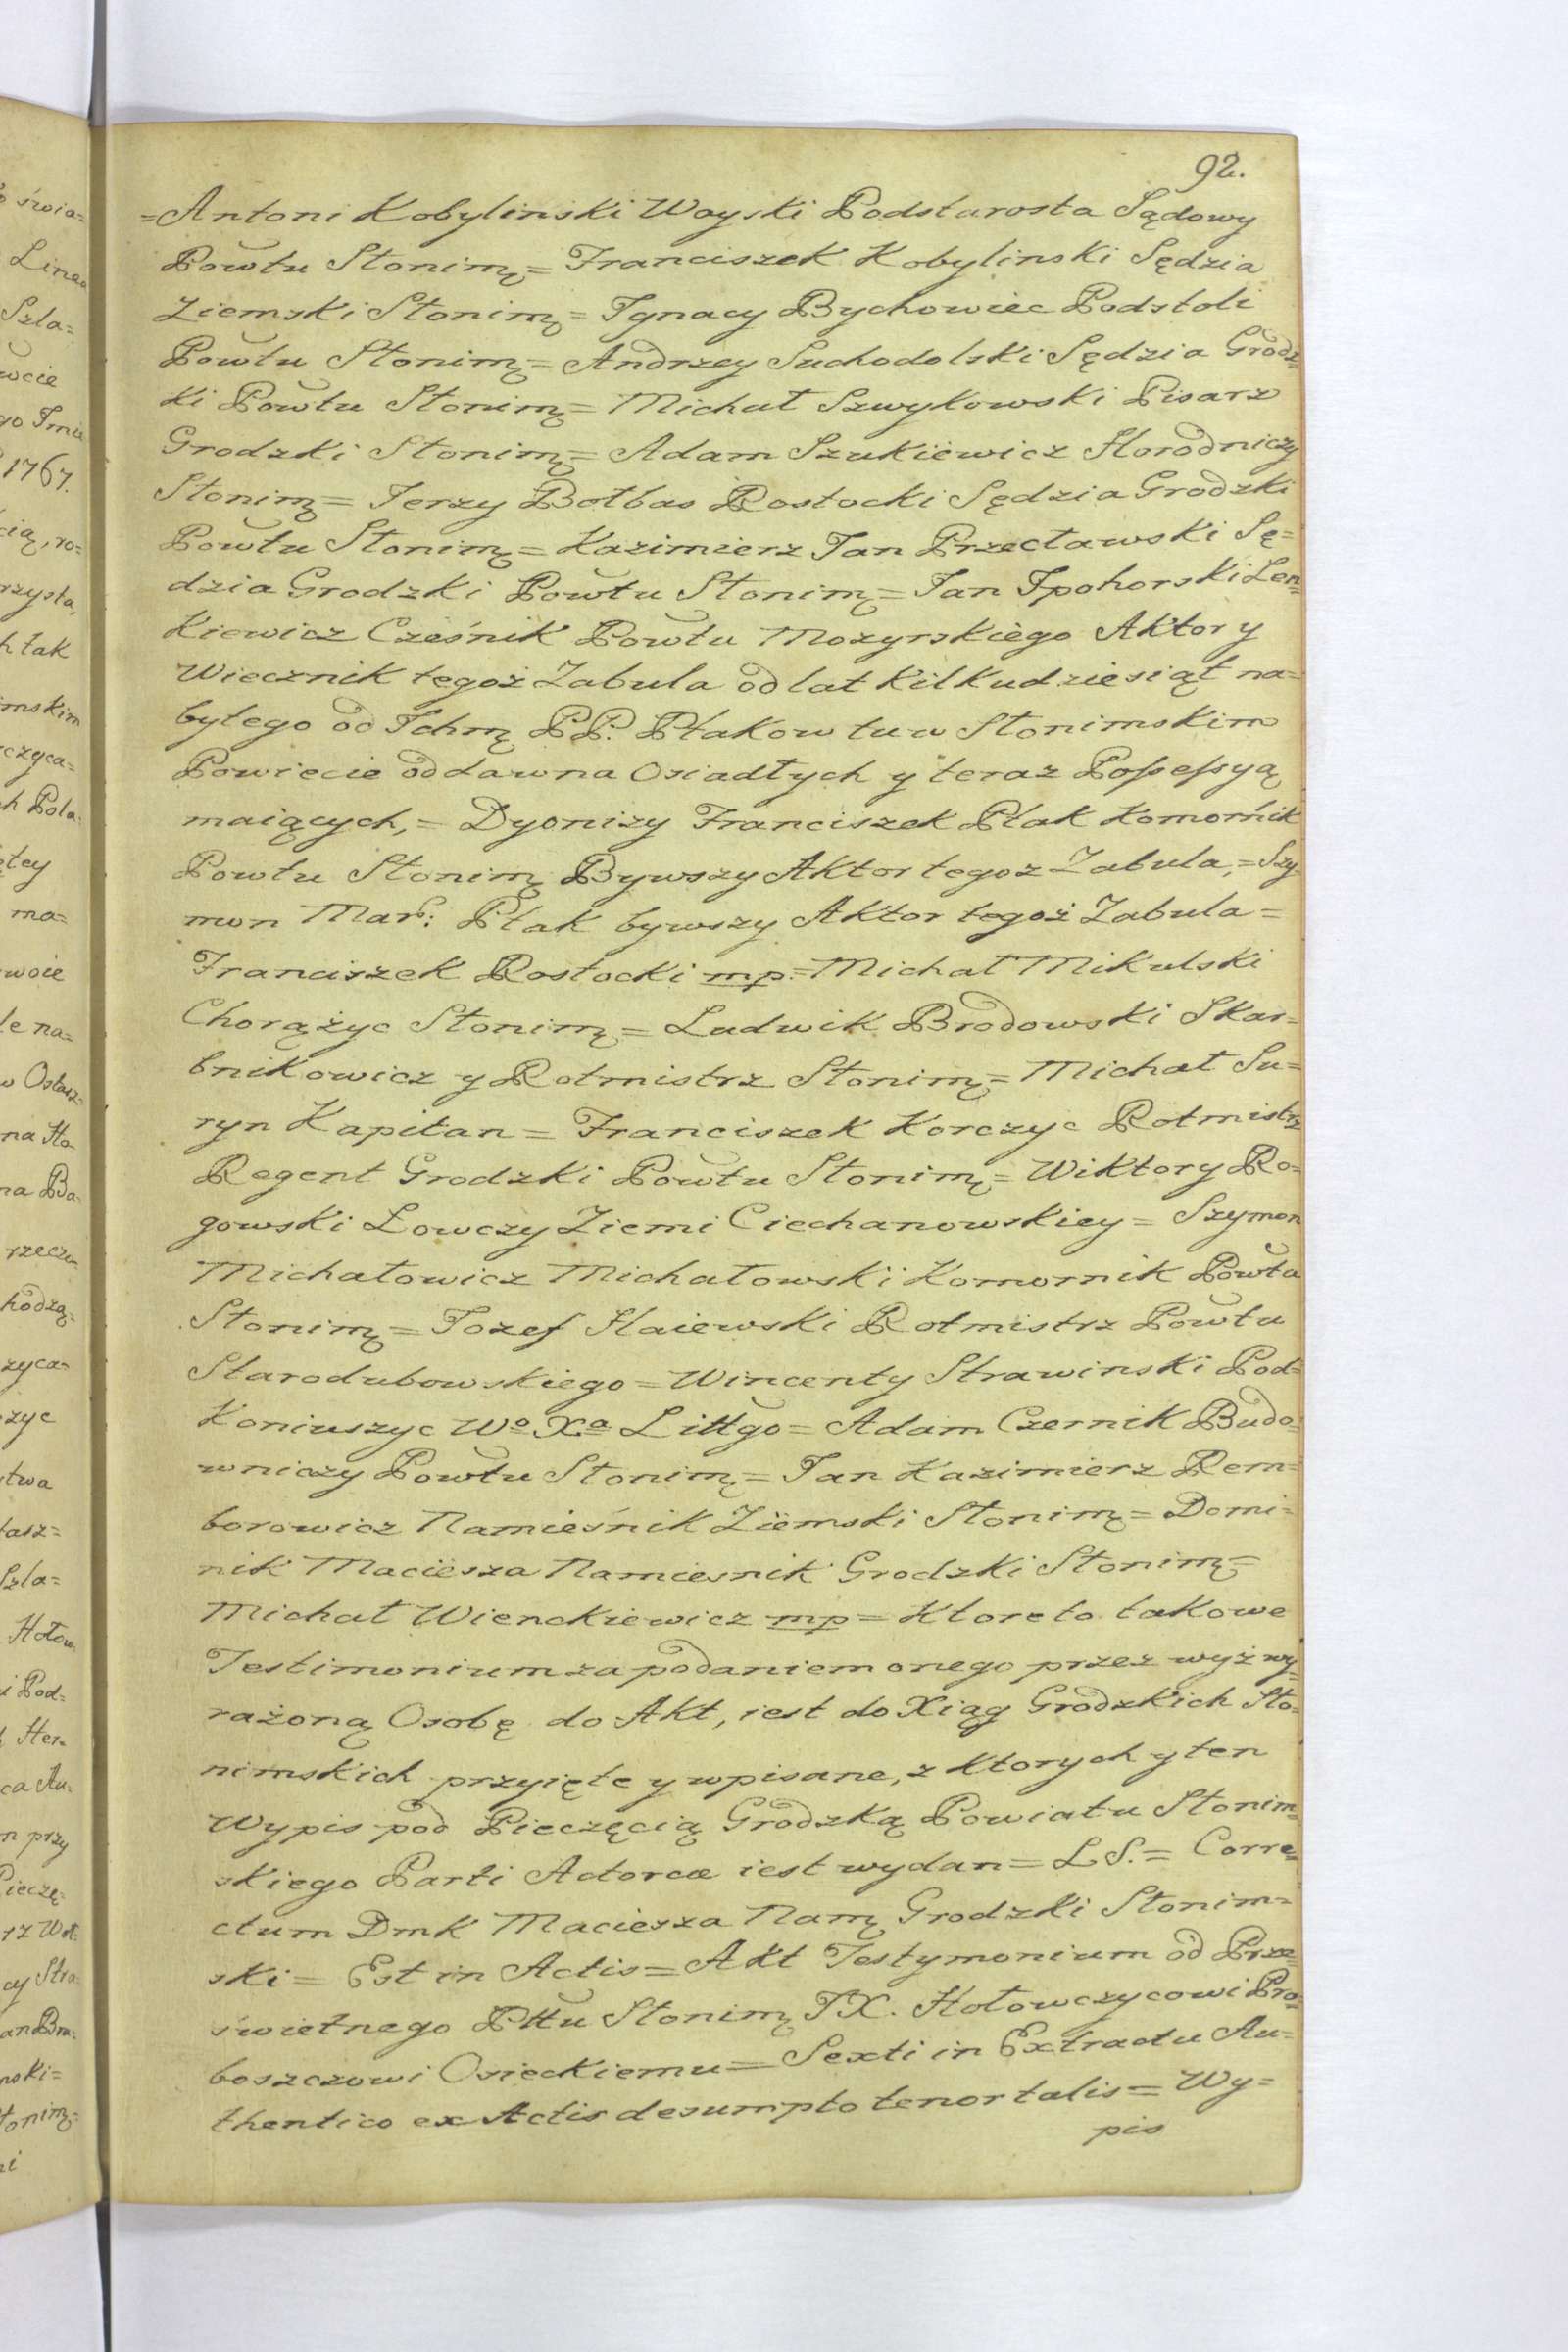 92.
=Antoni Kobylinski Woyski Podstarosta Sądowy
Powtu Słonimą = Franciszek Kobylinski Sędzia
Ziemski Słonimą = Ignacy Bychowiec Podstoli
Powtu Słonimą = Andrzey Suchodolski Sędzia Grodz=
ki Powtu Słonimą = Michał Szwykowski Pisarz
Grodzki Słonimą = Adam Szukiewicz Horodniczy
Słonimą = Jerzy Bołbas Rostocki Sędzia Grodzki
Powtu Słonimą = Kazimierz Jan Przecławski Sę=
dzia Grodzki Powtu Słonimą = Jan Ipohorski Len=
kiewicz Cześnik Powtu Mozyrskiego Aktor y
Wiecznik tegoż Zabula od lat kilkudziesiąt na=
bytego od Ichmą PP. Ptakow tu w Słonimskim
Powiecie oddawna Osiadłych y teraz Possessyą
maiących, = Dyonizy Franciszek Ptak Komornik
Powtu Słonimą Bywszy Aktor tegoż Zabula, = Szy=
mon Mar: Ptak bywszy Aktor tegoż Zabula =
Franciszek Rostocki mp. = Michał Mikulski
Chorążyc Słonimą = Ludwik Brodowski Skar=
bnikowicz y Rotmistrz Słonimą = Michał Su=
ryn Kapitan = Franciszek Korczyc Rotmistrz
Regent Grodzki Powtu Słonimą = Wiktory Ro=
gowski Łowczy Ziemi Ciechanowskiey = Szymon
Michałowicz Michałowski Komornik Powtu
Słonimą = Jozef Haiewski Rotmistrz Powtu
Starodubowskiego = Wincenty Strawinski Pod=
Koniuszyc Wo Xa Littgo = Adam Czernik Budo=
wniczy Powtu Słonimą = Jan Kazimierz Rem=
borowicz Namieśnik Ziemski Słonimą = Domi=
nik Maciesza Namiesnik Grodzki Słonimą =
Michał Wienckiewicz mp = Ktore to takowe
Testimonium za podaniem onego przez wyż wy=
rażoną Osobę do Akt, iest do Xiąg Grodzkich Sło=
nimskich przyięte y wpisane, z ktorych y ten
Wypis pod Pieczęcią Grodzką Powiatu Słonim=
skiego Parti Actoreæ iest wydan = L S. = Corre=
ctum Dmk Maciesza Namą Grodzki Słonim=
ski = Est in Actis = Akt Testymonium od Prze=
świetnego Pttu Słonimą JX. Hołowczycowi Pro=
boszczowi Osieckiemu = Sexti in Extractu Au=
thentico ex Actis desumpto tenor talis = Wy=
pis